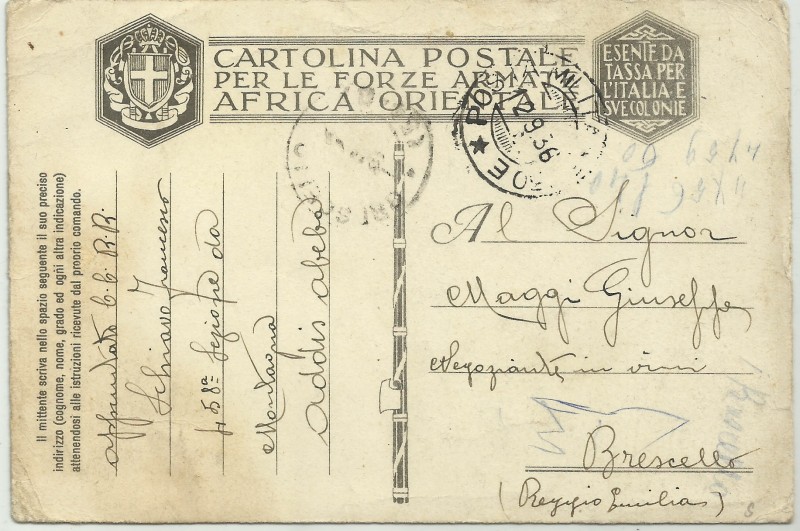 CARTOLINA POSTALE
PER LE FORZE ARMATE
AFRICA ORIENTALE
ESENTE DA
TASSA PER
L'ITALIA E
SVE COLONIE
POSTA MILIT
12.9.36
Il mittente scriva nello spazio seguente il suo preciso
indirizzo (cognome, nome, grado ed ogni altra indicazione)
attenendosi alle istruzioni ricevute dal proprio comando.
appuntato C.C. R.R.
Schiavo Francesco
458ª Sezione da
Montagna
Addis Abeba
Al Signor
Maggi Giuseppe
Negoziante in vini
Brescello
(Reggio Emilia)